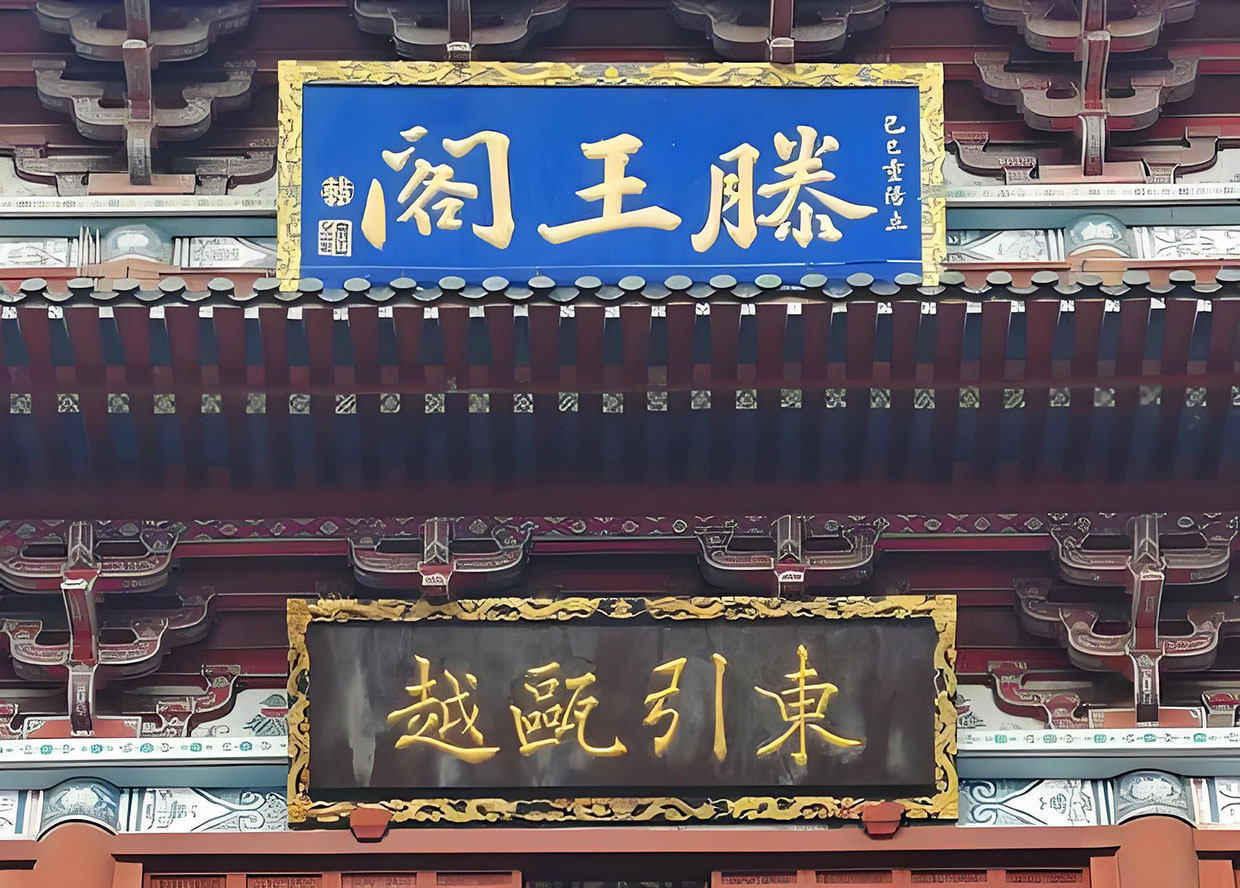 己巳重陽立
滕王阁
東引甌越